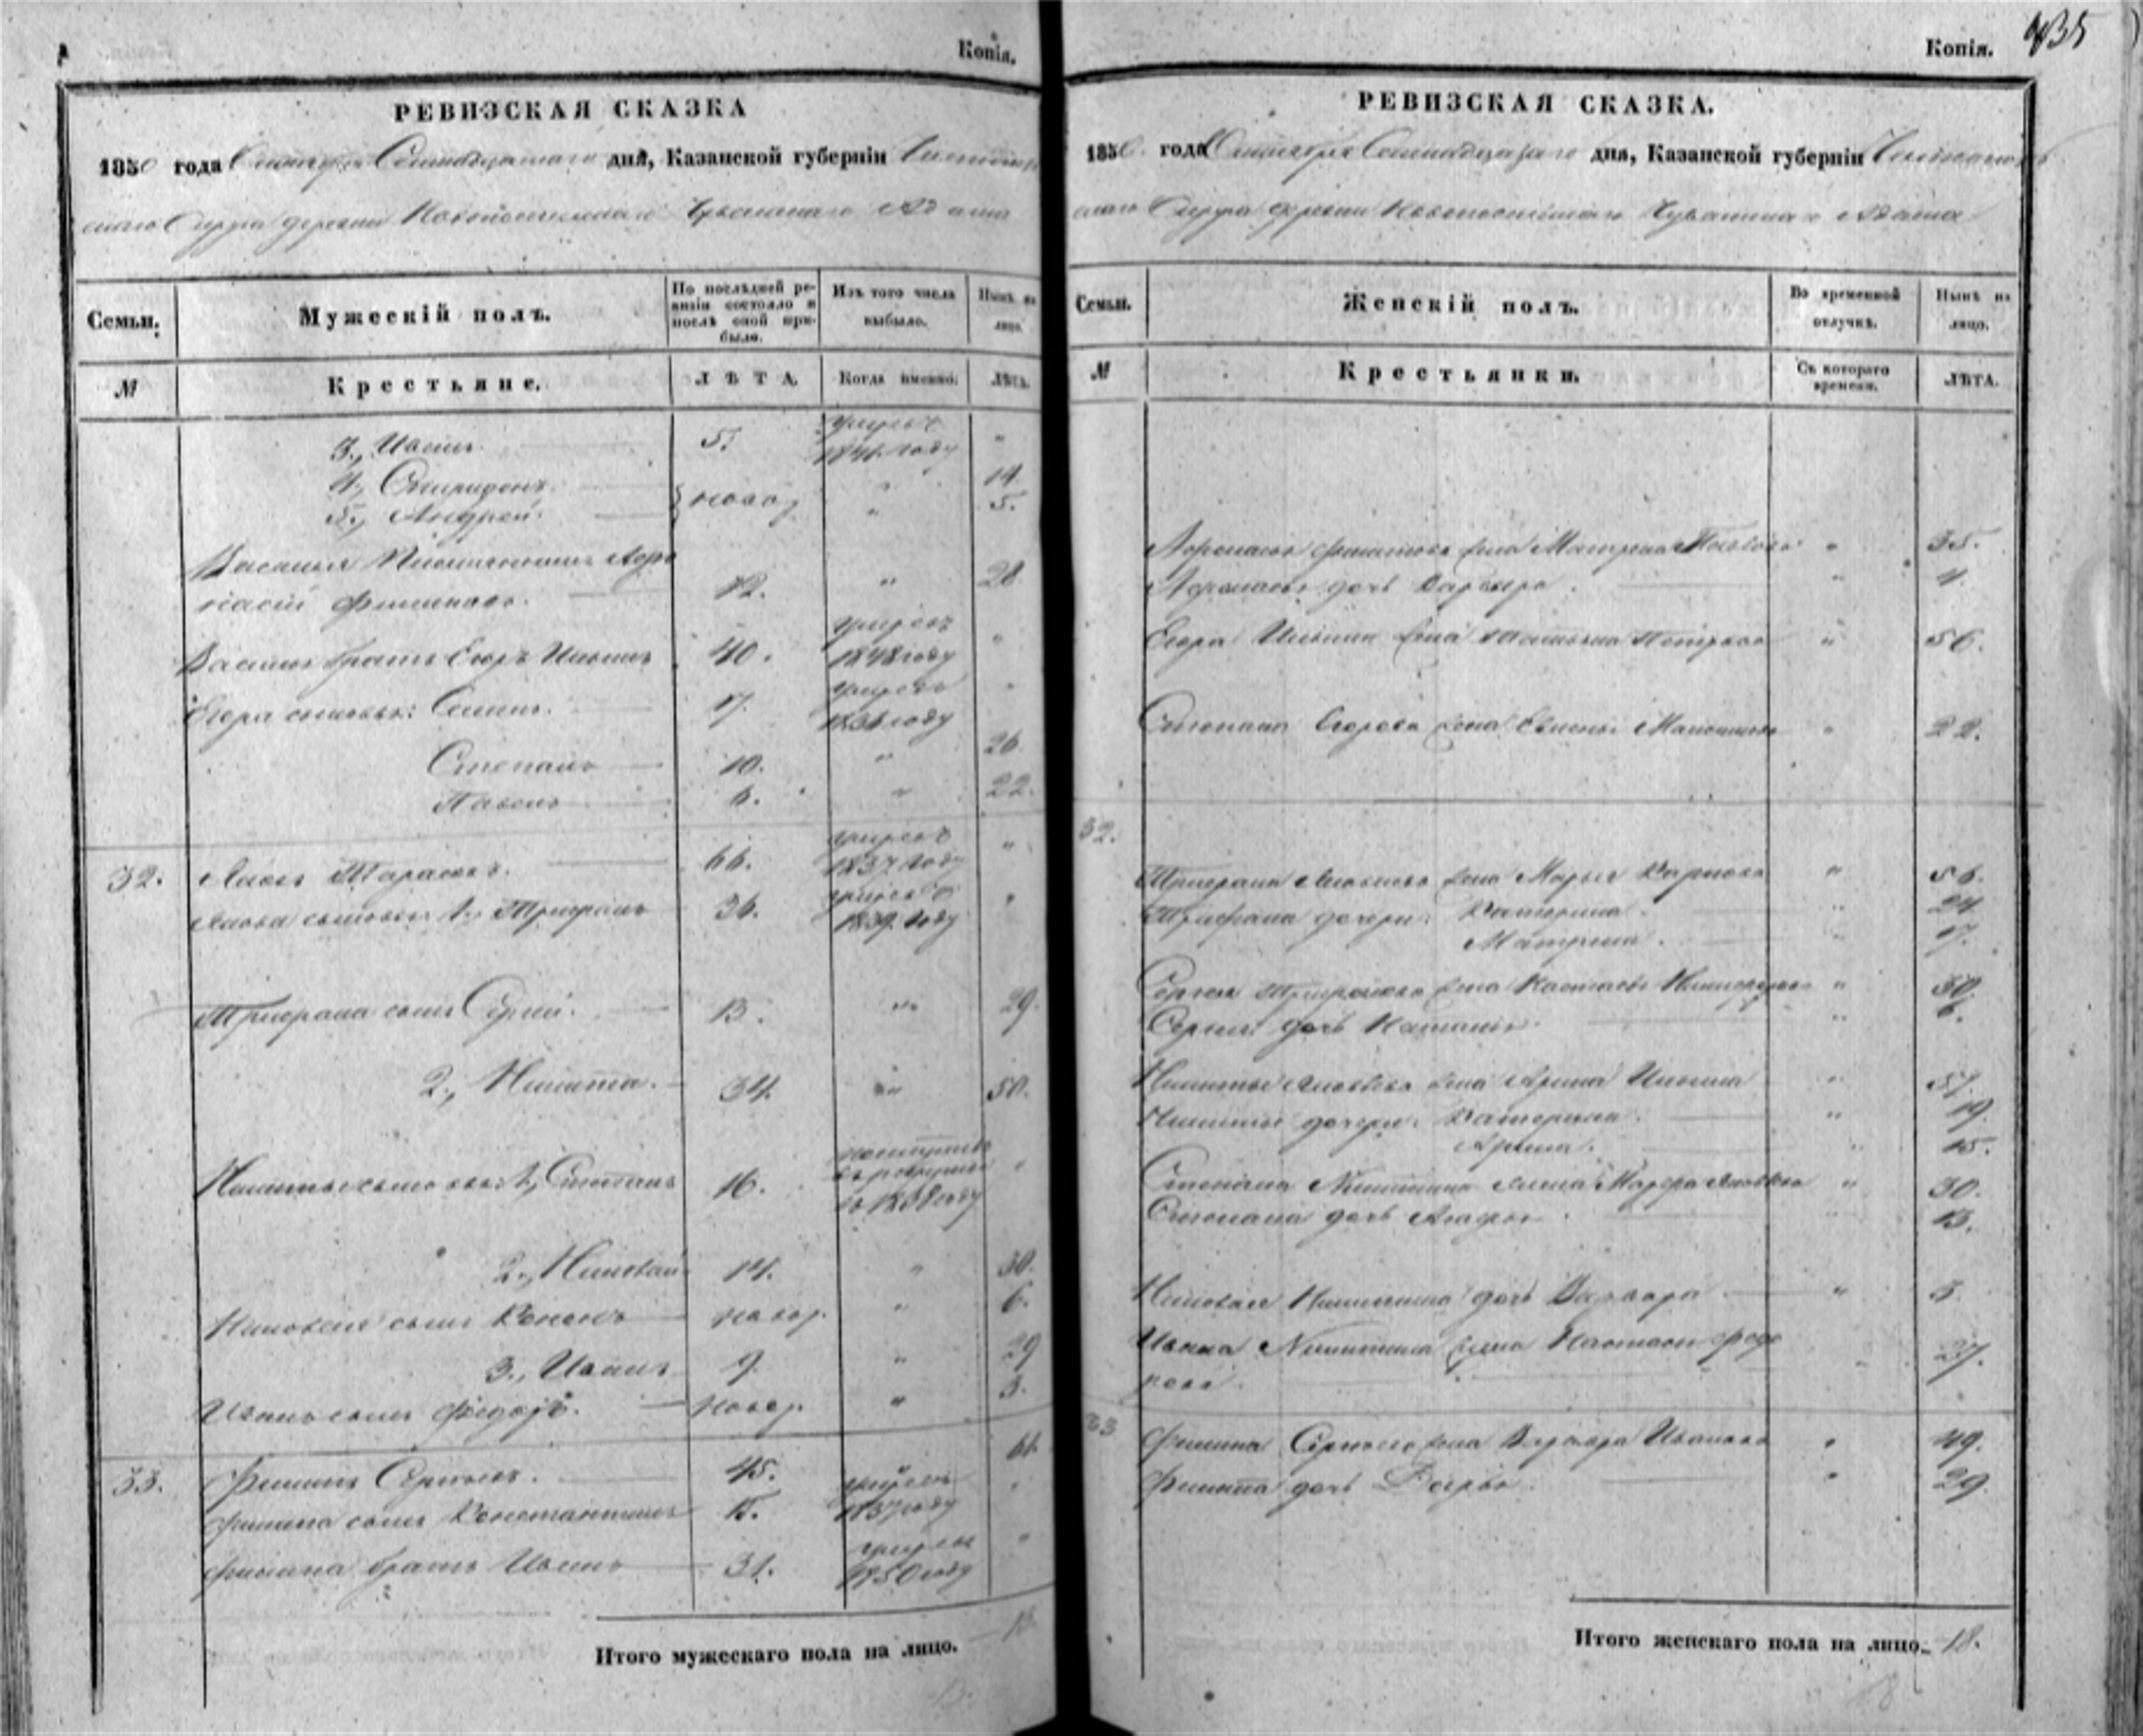 Копія.
РЕВИЗСКАЯ СКАЗКА
1850 года Сентября Семнадцатаго дня, Казанской губерніи
скаго Округа деревни Новопоселеннаго Чувашскаго Адама
Семьи.
Мужескій полъ.
По послѣдней ре-
визіи состояло и
послѣ оной при-
было.
Изъ того числа
выбыло.
Нынѣ на
лицо.
№
Крестьяне.
ЛѢТА.
Когда именно.
ЛѢТА.
3., Иванъ. 5. умеръ 1841. году "
4., Спиридонъ. новор " 14.
5., Андрей. " 5.
Василья Афо
насій Филиповъ. 12. " 28.
Василья братъ Егоръ Ильинъ 40. умеръ 1848 году "
Егора сыновья: Семенъ. 17. умеръ 1836 году "
Степанъ 10. " 26.
Павелъ 6. " 22.
32. Яковъ Тарасовъ. 66. умеръ 1837 году "
Якова сыновья 1., Трифонъ 36. умеръ 1839. году "
Трифона сынъ Сергей. 13. " 29.
2., Никита. 34. " 50.
Никиты сыновья: 1., Степанъ 16. поступилъ въ рекруты въ 1838 году "
2., Николай 14. " 30.
Николая сынъ Кононъ новор. " 6.
3., Иванъ 9. " 29
Ивана сынъ Федоръ. новор. " 3.
33. Филипъ Сергѣевъ. 45. 61.
Филипа сынъ Константинъ 15. умеръ 1837 году "
Филипа братъ Иванъ 31. умеръ 1850 году "
Итого мужескаго пола на лицо. 13.
Копія.
435
РЕВИЗСКАЯ СКАЗКА.
1850. года Сентября Семнадцатаго дня, Казанской губерніи
скаго Округа деревни Новопоселеннаго Чувашскаго Адама
Семьи.
Женскій полъ.
Во временной
отлучкѣ.
Нынѣ на
лицо.
№
Крестьянки.
Съ котораго
времени.
ЛѢТА.
Афонасья Филипова жена Матрена Павлова " 35.
Афонасья дочь Варвара. " 4.
Егора Ильина жена Татьяна Петрова " 56.
Степана Егорова жена " 22.
32.
Трифона Яковлева жена Марья Карпова " 56.
Трифона дочери: Катерина. " 24
Матрена. " 17.
Сергея Трифонова жена Настасья " 30.
Сергея дочь Наталья. " 6.
Никиты Яковлева жена Арина Ильина " 51.
Никиты дочери: Катерина. " 19.
Арина. " 15.
Степана Никитина жена Яковлева " 30.
Степана дочь Агафья. " 13.
Николая Никитина дочь Варвара " 5.
Ивана Никитина жена Настасья Федо
рова. " 27.
33
Филипа Сергѣева жена Варвара Иванова " 49.
Филипа дочь Дарья. " 29.
Итого женскаго пола на лицо. 18.